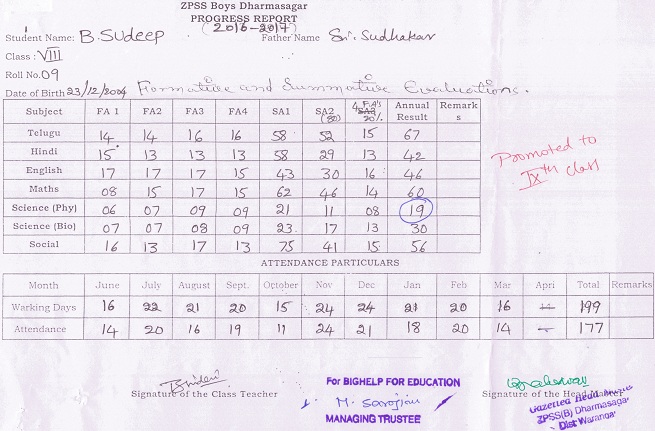 ZPSS Boys Dharmasagar
PROGRESS REPORT
(2016-2017)
Student Name: B. Sudeep Father Name Sri. Sudhakar
Class : VIII
Roll No. 09
Date of Birth 23/12/2004 Formative and Summative Evaluations.
Subject FA 1 FA2 FA3 FA4 SA1 SA2 (80) 4 F.A's 20%. Annual Result Remarks
Telugu 14 14 16 16 58 52 15 67
Hindi 15 13 13 13 58 29 13 42
English 17 17 17 15 43 30 16 46
Maths 08 15 17 15 62 46 14 60
Science (Phy) 06 07 09 09 21 11 08 19
Science (Bio) 07 07 08 09 23 17 13 30
Social 16 13 17 13 75 41 15 56
Promoted to
IXth class
ATTENDANCE PARTICULARS
Month June July August Sept. October Nov Dec Jan Feb Mar Apri Total Remarks
Warking Days 16 22 21 20 15 24 24 21 20 16 — 199
Attendance 14 20 16 19 11 24 21 18 20 14 — 177
Signature of the Class Teacher
For BIGHELP FOR EDUCATION
M. Sarojini
MANAGING TRUSTEE
Signature of the Head Master
Gazetted Head
ZPSS(B) Dharmasagar
Dist Warangal